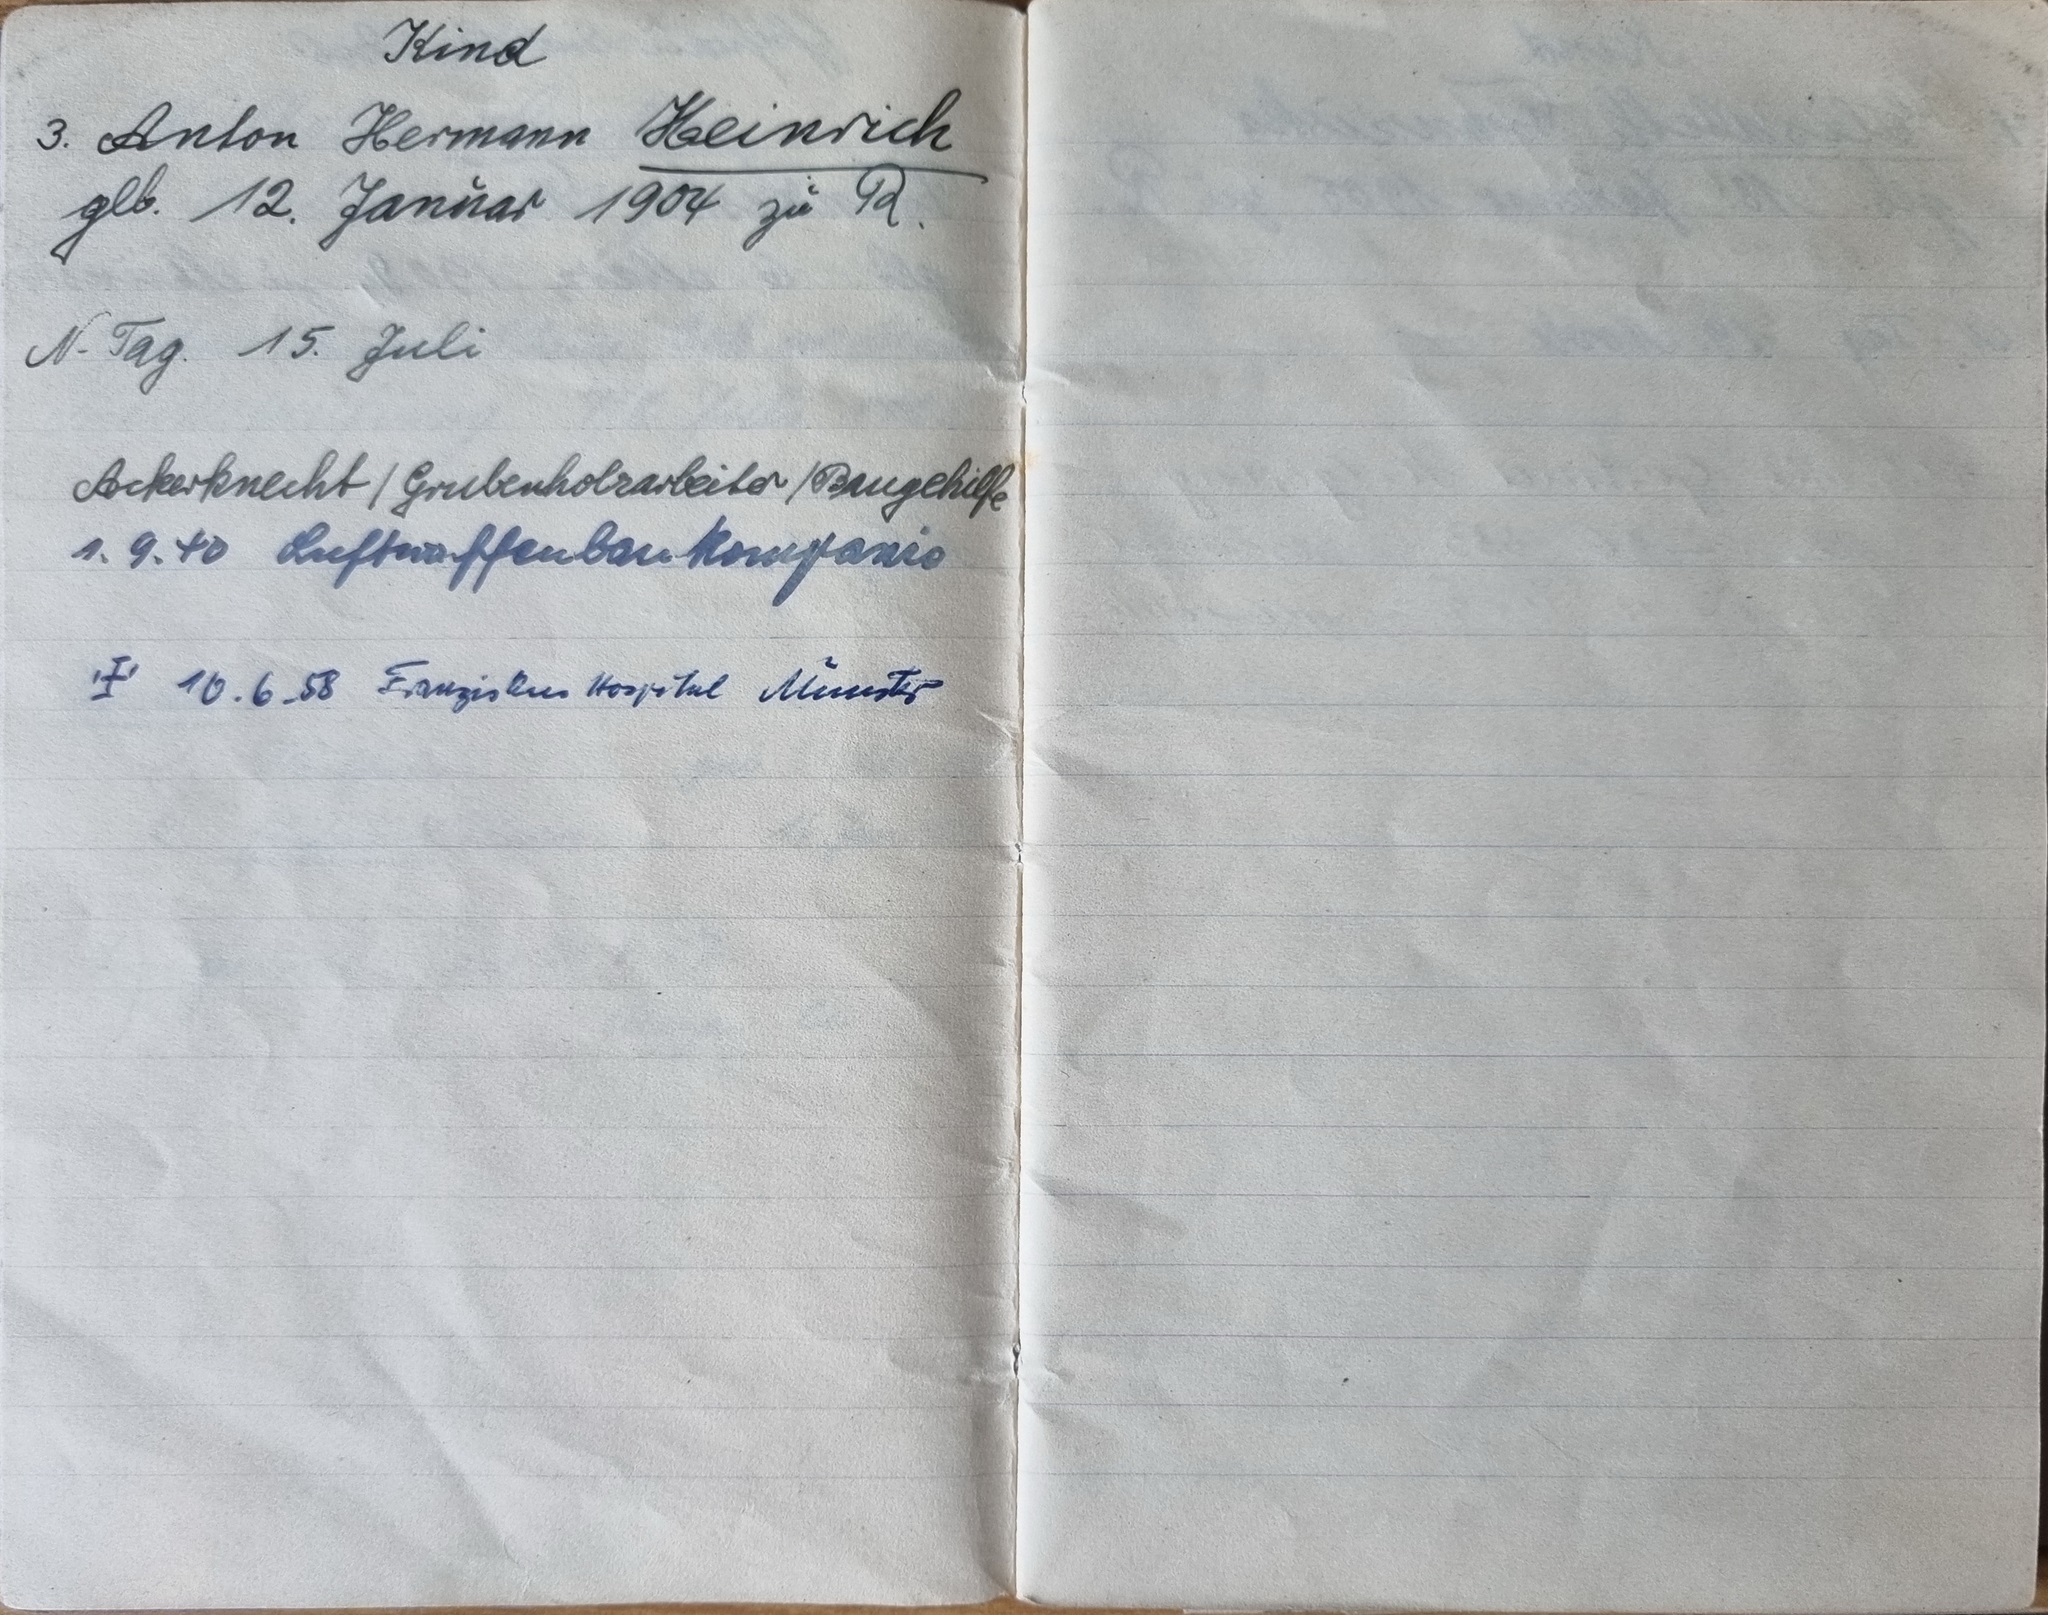 Kind
3. Anton Hermann Heinrich
geb. 12. Januar 1904 zu R.
N-Tag. 15. Juli
Ackerknecht / Grubenholzarbeiter / Baugehilfe
1. 9. 40 Luftwaffenbaukompanie
10.6.58 Franziskus Hospital Münster